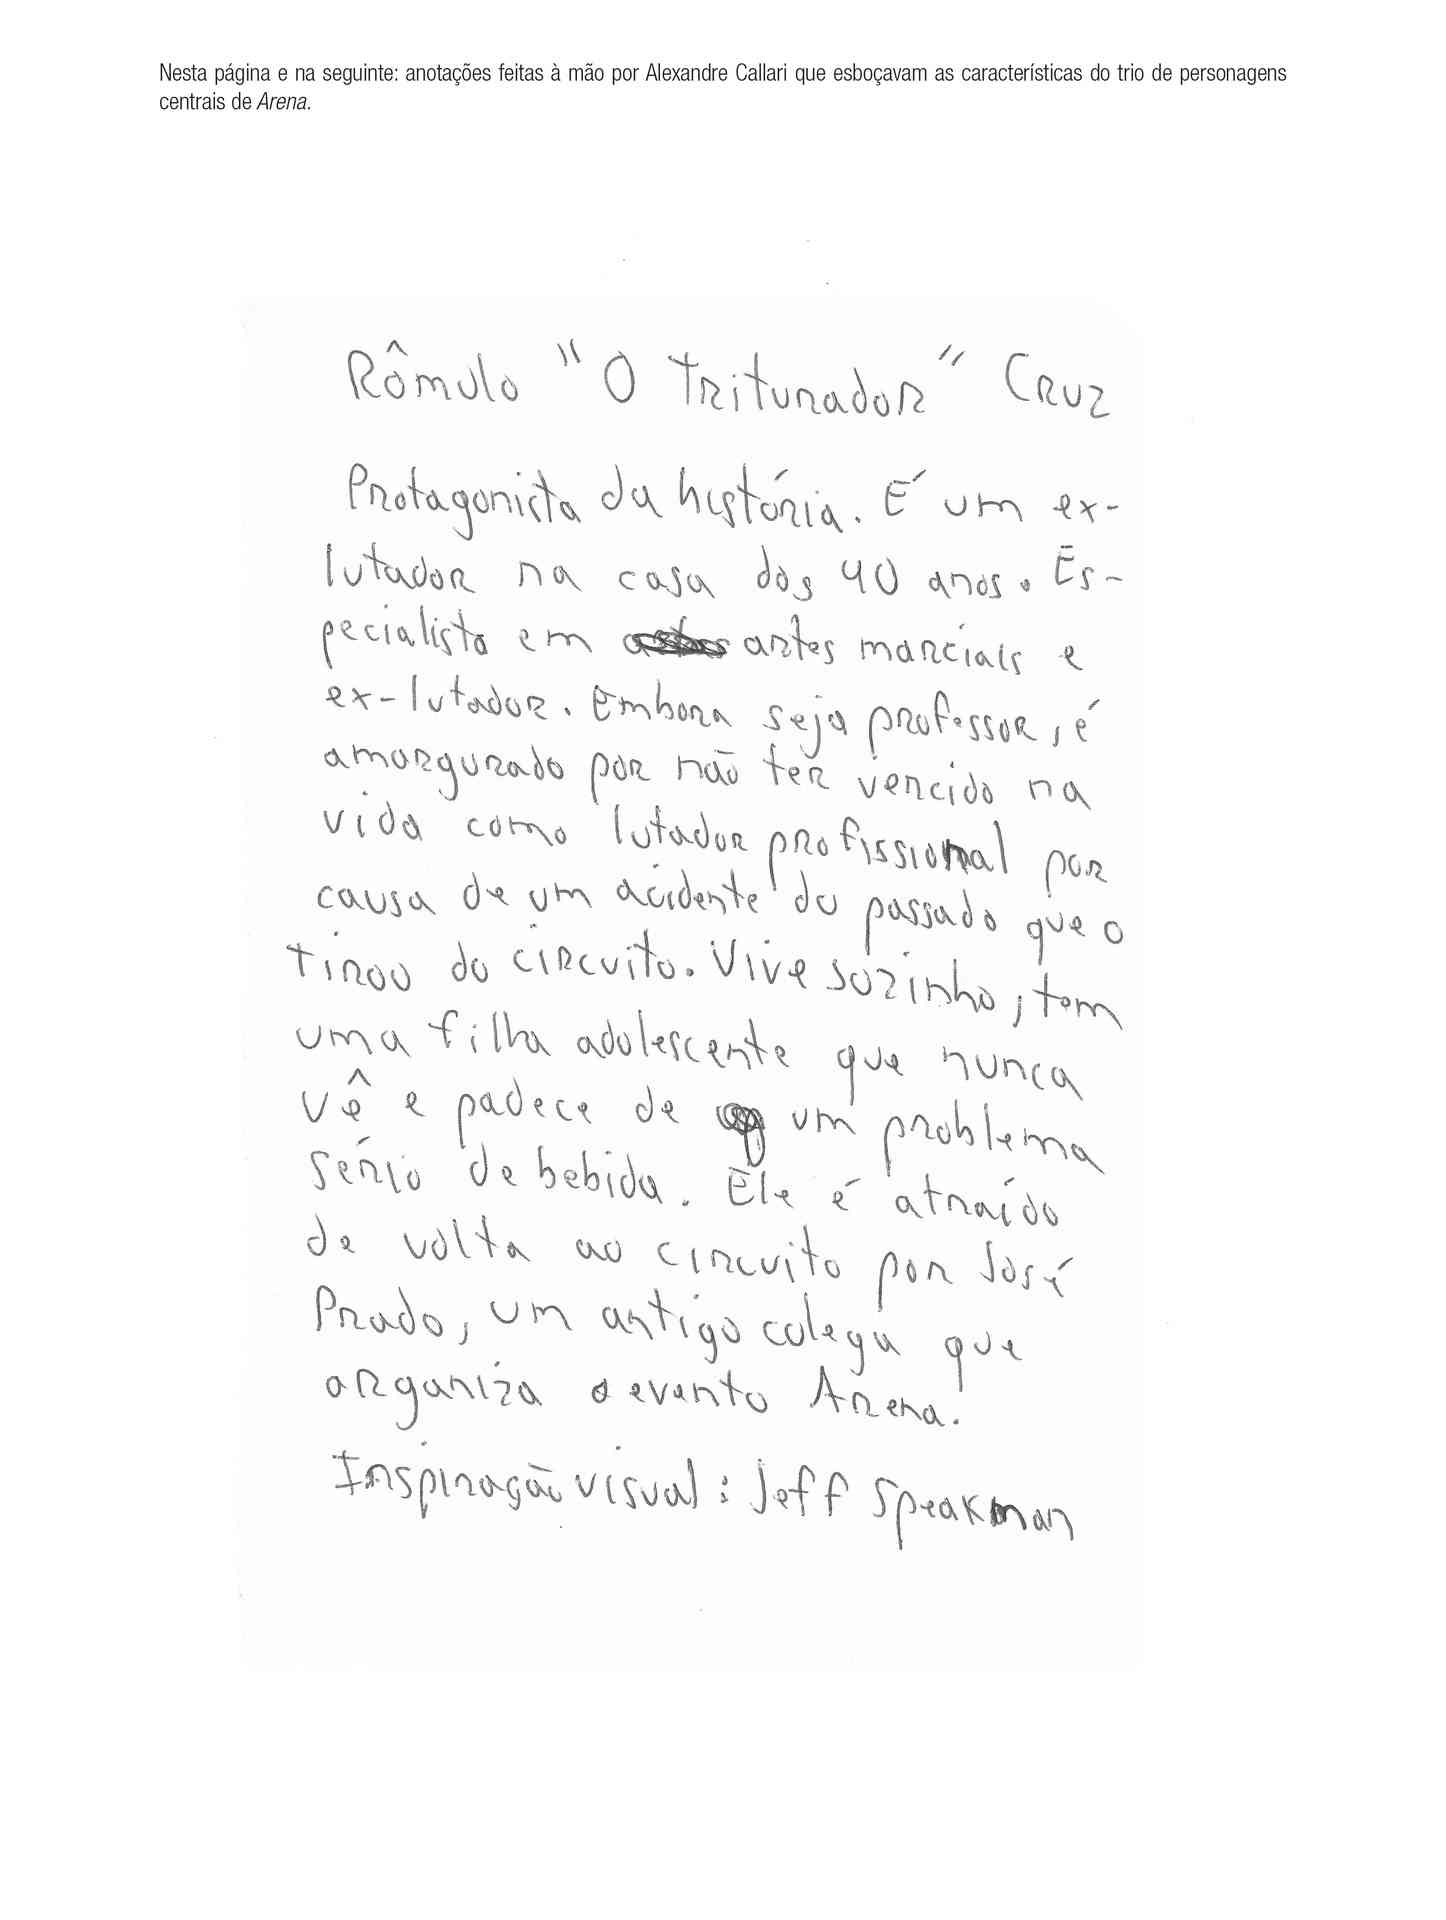 Nesta página e na seguinte: anotações feitas à mão por Alexandre Callari que esboçavam as características do trio de personagens
centrais de Arena.
Rômulo "O Triturador" Cruz
Protagonista da história. É um ex-
lutador na casa dos 40 anos. Es-
pecialista em artes marciais e
ex-lutador. Embora seja professor, é
amargurado por não ter vencido na
vida como lutador profissional por
causa de um acidente do passado que o
tirou do circuito. Vive sozinho, tem
uma filha adolescente que nunca
vê e padece de um problema
sério de bebida. Ele é atraído
de volta ao circuito por José
Prado, um antigo colega que
organiza o evento Arena.
Inspiração visual: Jeff Speakman